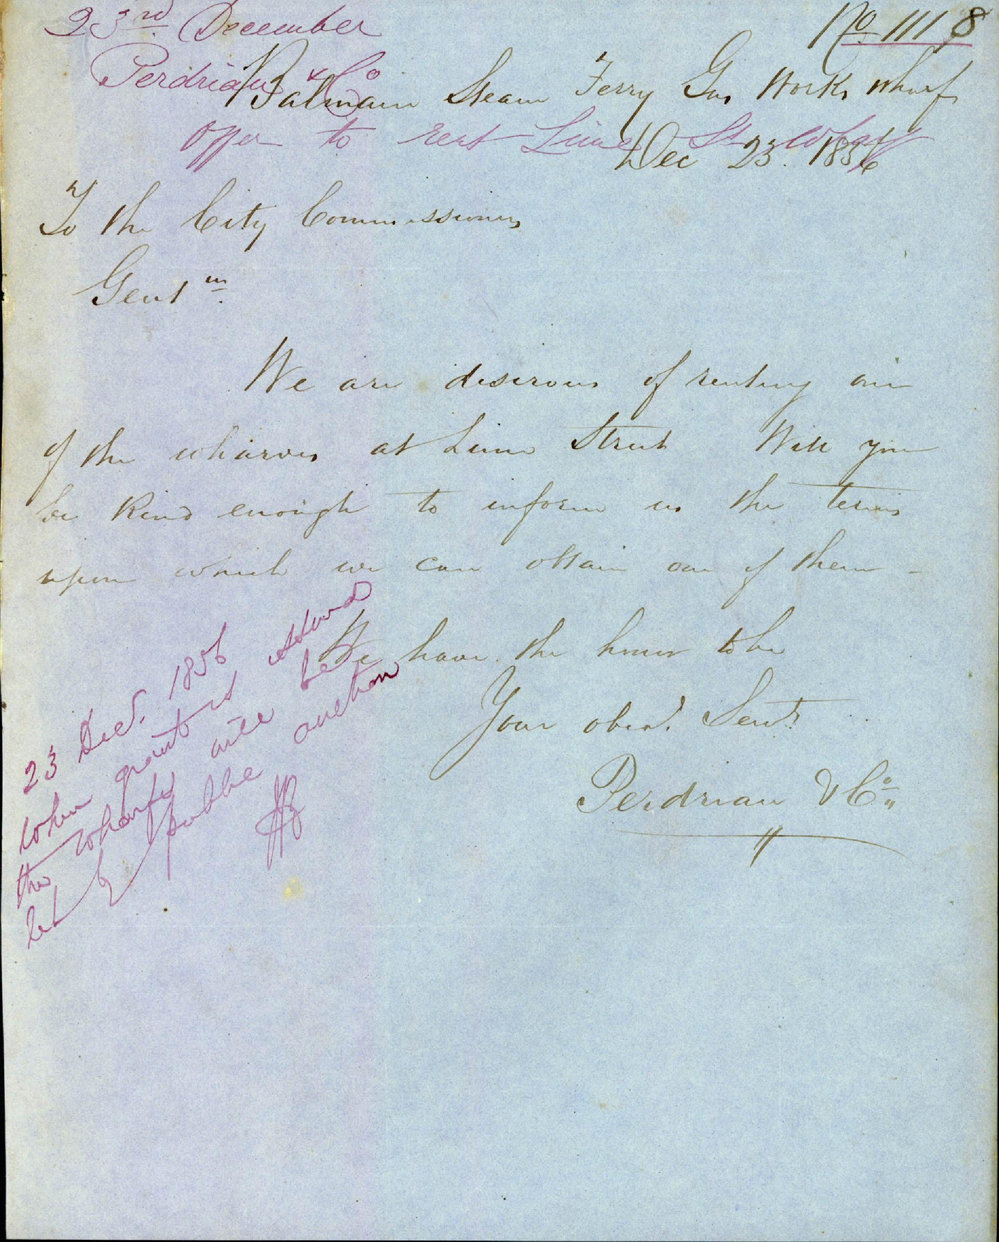 23rd December
No 1118
Perdriau & Co
Balmain Steam Ferry Gas Works Wharf
offer to rent Lime St Wharf
Dec 23. 1856
To the City Commissioners
Gentm
We are desirous of renting one
of the wharves at Lime Street Will you
be kind enough to inform us the terms
upon which we can obtain one of them -
We have the honor to be
Your obedt Servts
Perdriau & Co
23 Dec. 1856
When grant is issued
the wharfs will be
let by public auction